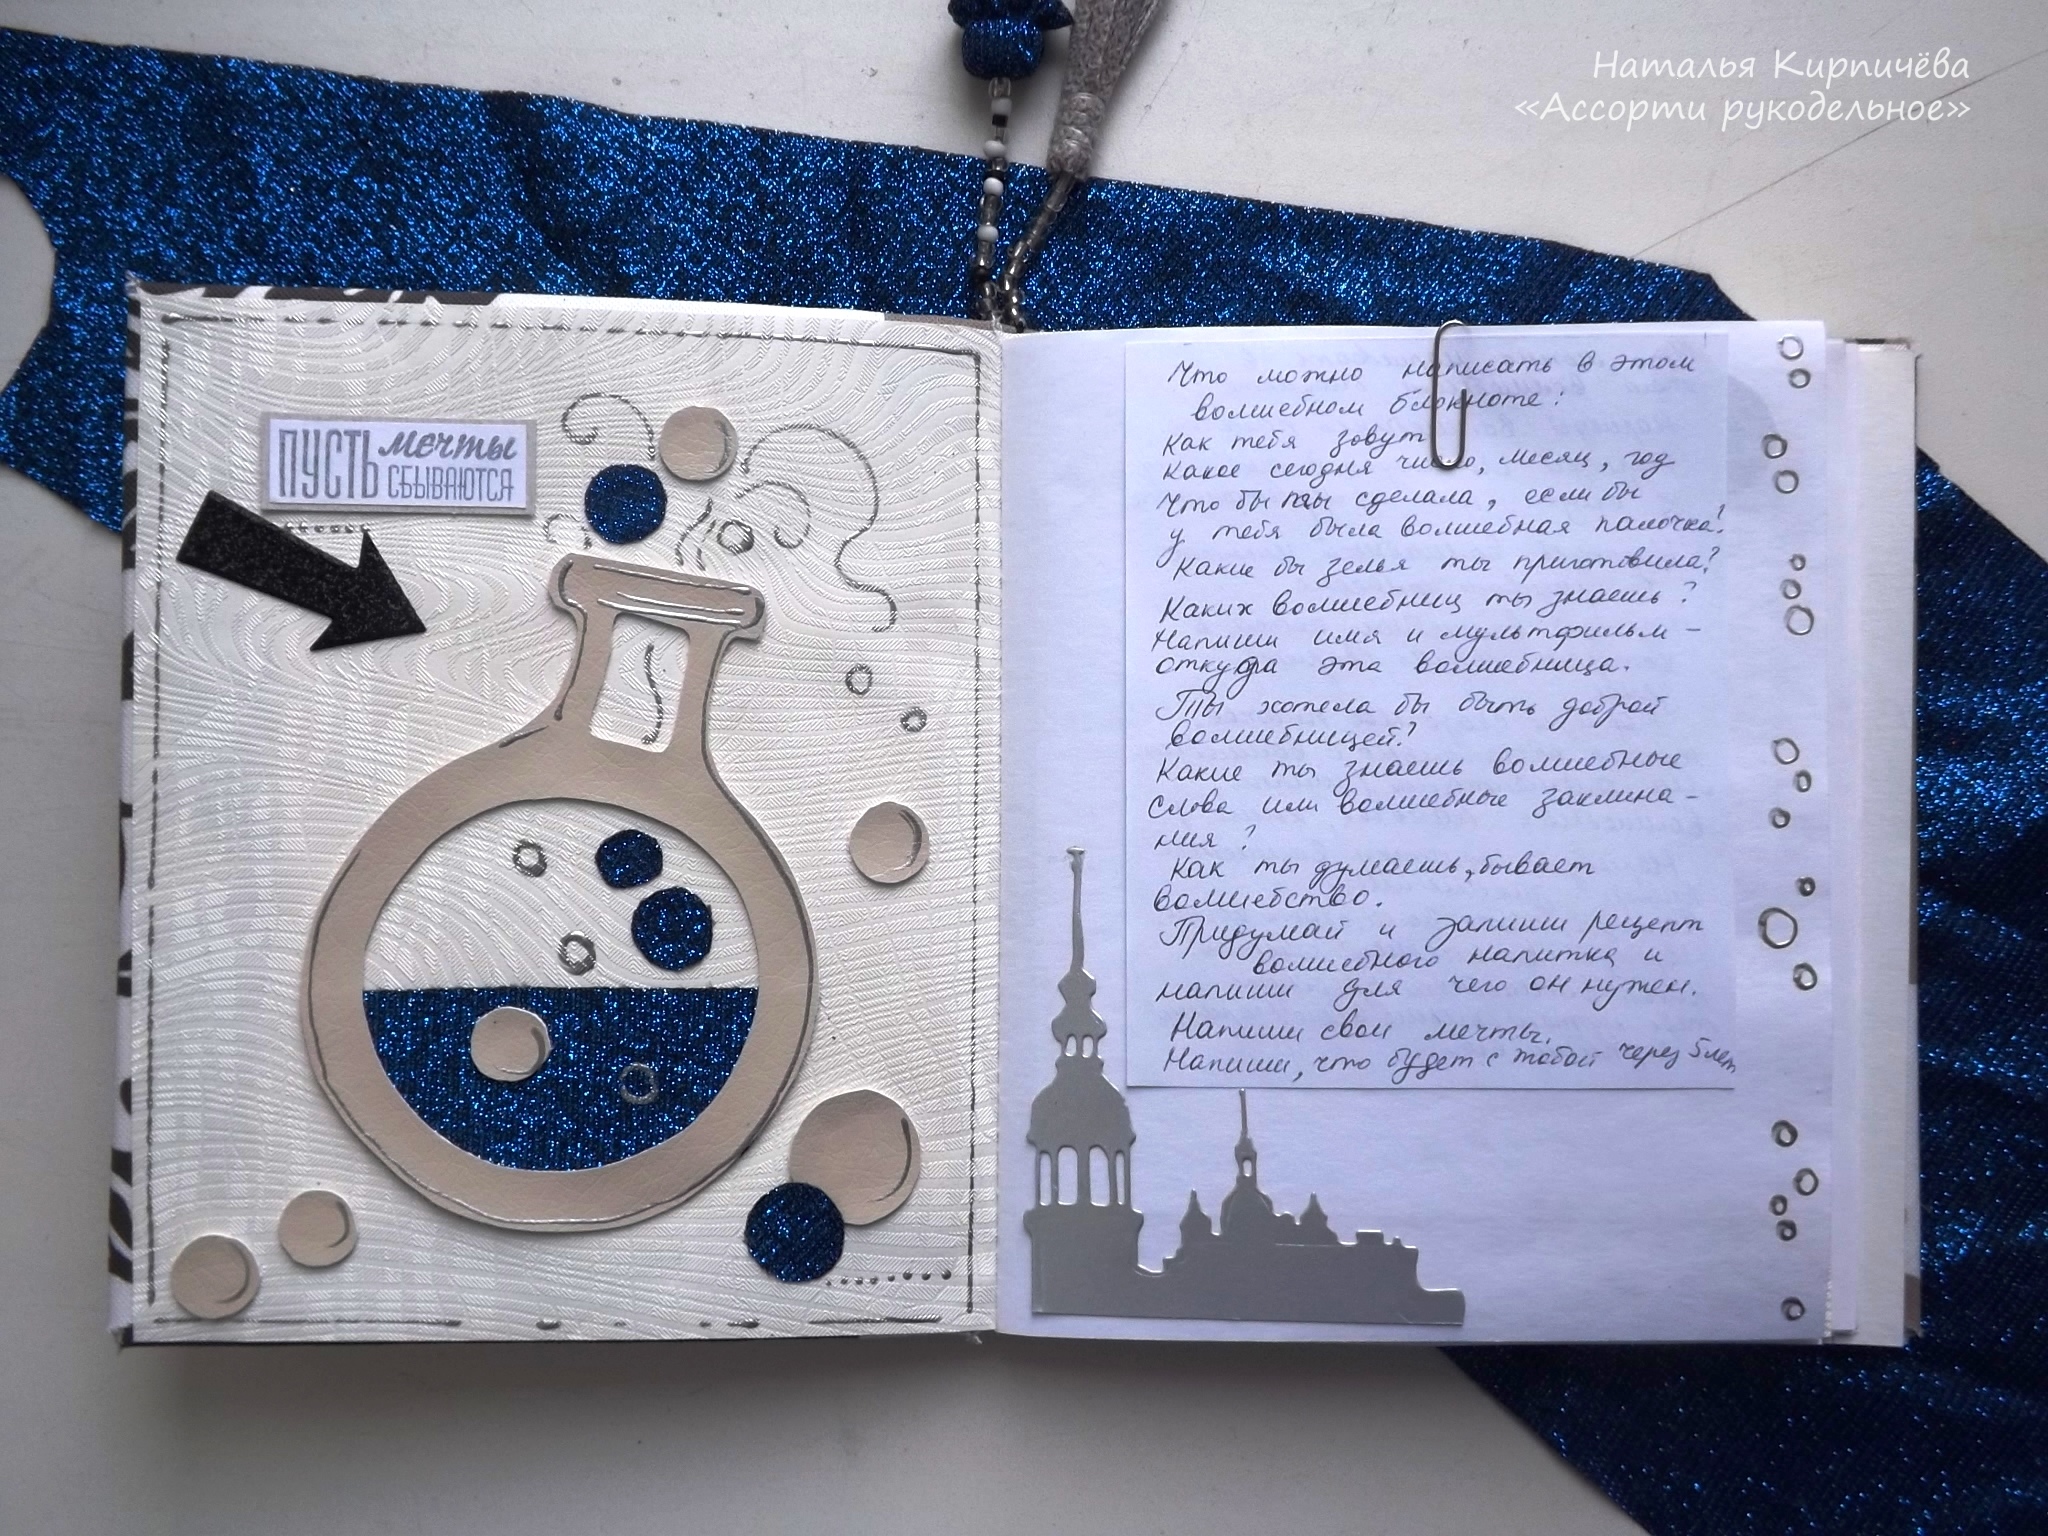 Наталья Кирпичёва
«Ассорти рукодельное»
ПУСТЬ мечты
СБЫВАЮТСЯ
Что можно написать в этом
волшебном блокноте:
Как тебя зовут
Какое сегодня число, месяц, год
Что бы ты сделала, если бы
у тебя была волшебная палочка?
Какие бы зелья ты приготовила?
Каких волшебниц ты знаешь?
Напиши имя и мультфильм -
откуда эта волшебница.
Ты хотела бы быть доброй
волшебницей?
Какие ты знаешь волшебные
слова или волшебные заклина-
ния?
Как ты думаешь, бывает
волшебство.
Придумай и запиши рецепт
волшебного напитка и
напиши для чего он нужен.
Напиши свои мечты.
Напиши, что будет с тобой через 5 лет